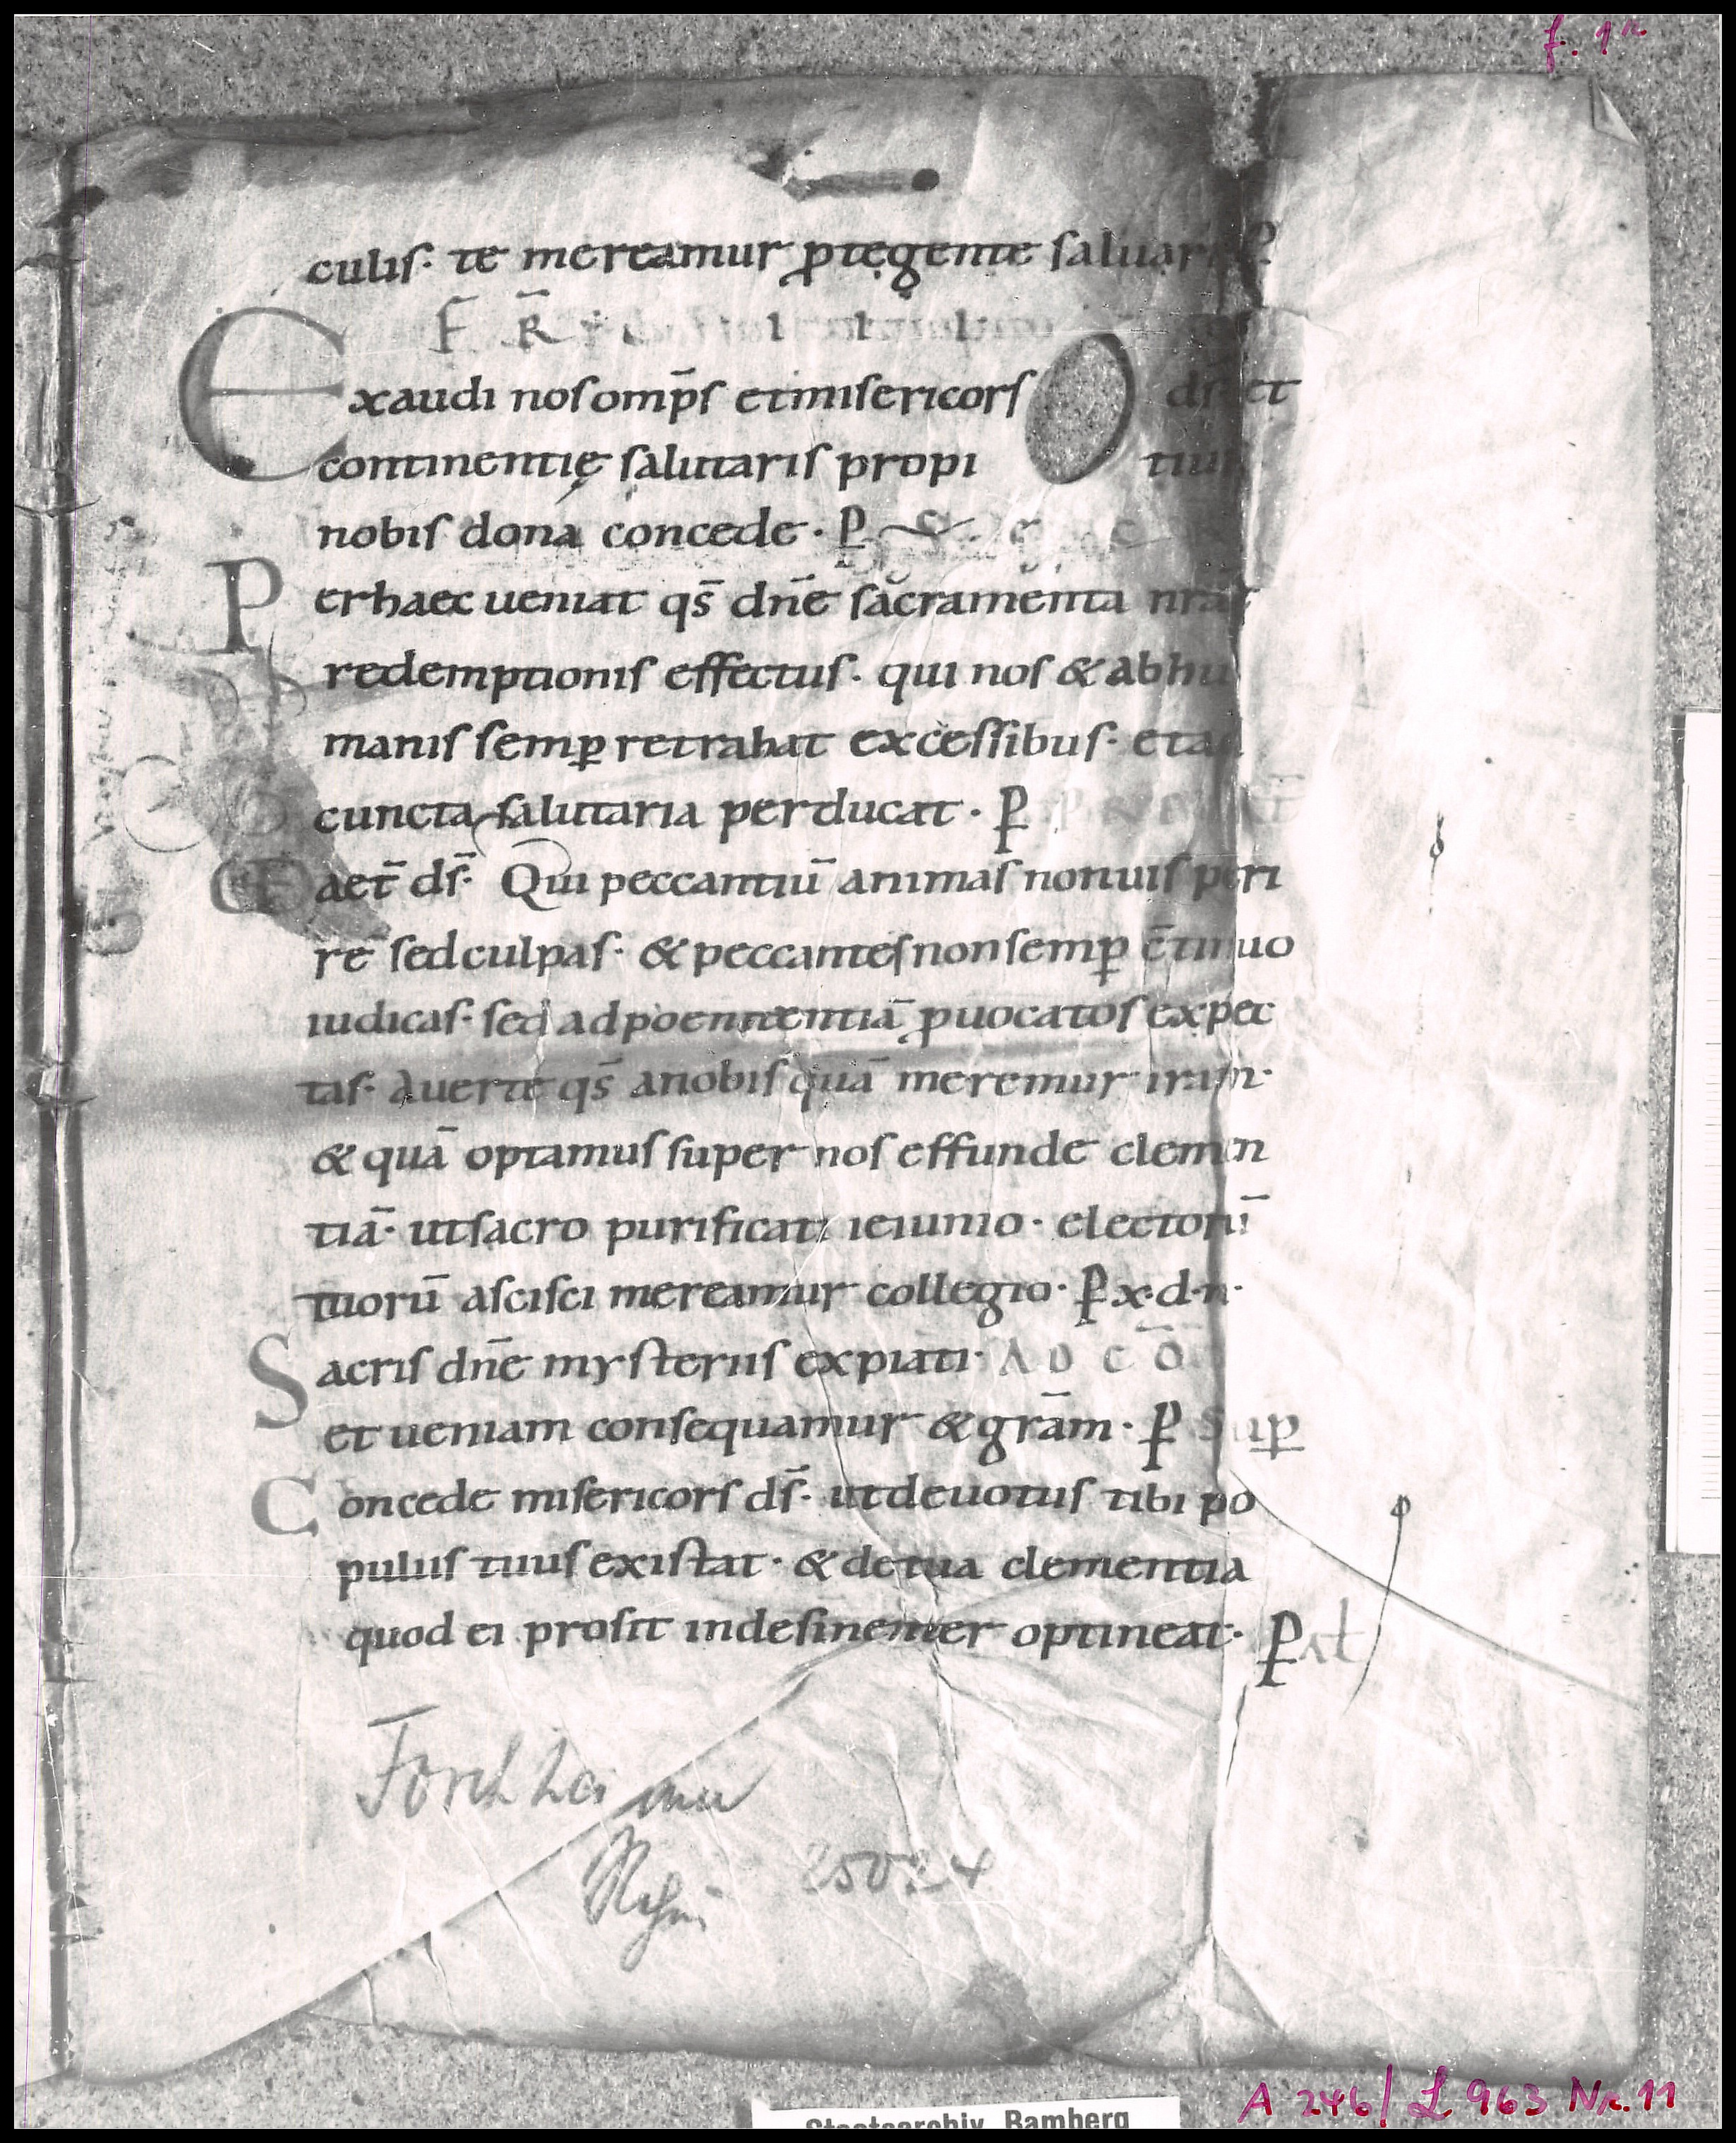 f. 1r
culis· te mereamur ꝓtegente saluari P
F̄ R̄
Exaudi nos omp̄s et misericors ds̄ et
continentię salutaris propi tius
nobis dona concede · P
Per haec ueniat qs̄ dn̄e sacramenta nrāe
redemptionis effectus· qui nos & ab hu
manis semꝑ retrahat excessibus· et ad
cuncta salutaria perducat · P
aet̄ ds̄· Qui peccantiū animas non uis peri
re sed culpas· & peccantes non semꝑ c̄tinuo
iudicas· sed ad poenitentiā ꝓuocatos expec
tas· auerte qs̄ a nobis quā meremur iram·
& quā optamus super nos effunde clemen
tiā· ut sacro purificati ieiunio· electorū
tuorū ascisci mereamur collegio· P x·d·n·
Sacris dn̄e mysteriis expiati· AD CŌ
et ueniam consequamur & grām · P Suꝑ
Concede misericors ds̄· ut deuotus tibi po
pulus tuus existat· & de tua clementia
quod ei prosit indesinenter optineat· P
Forchheimer
Staatsarchiv Bamberg
A 246 / L 963 Nr. 11